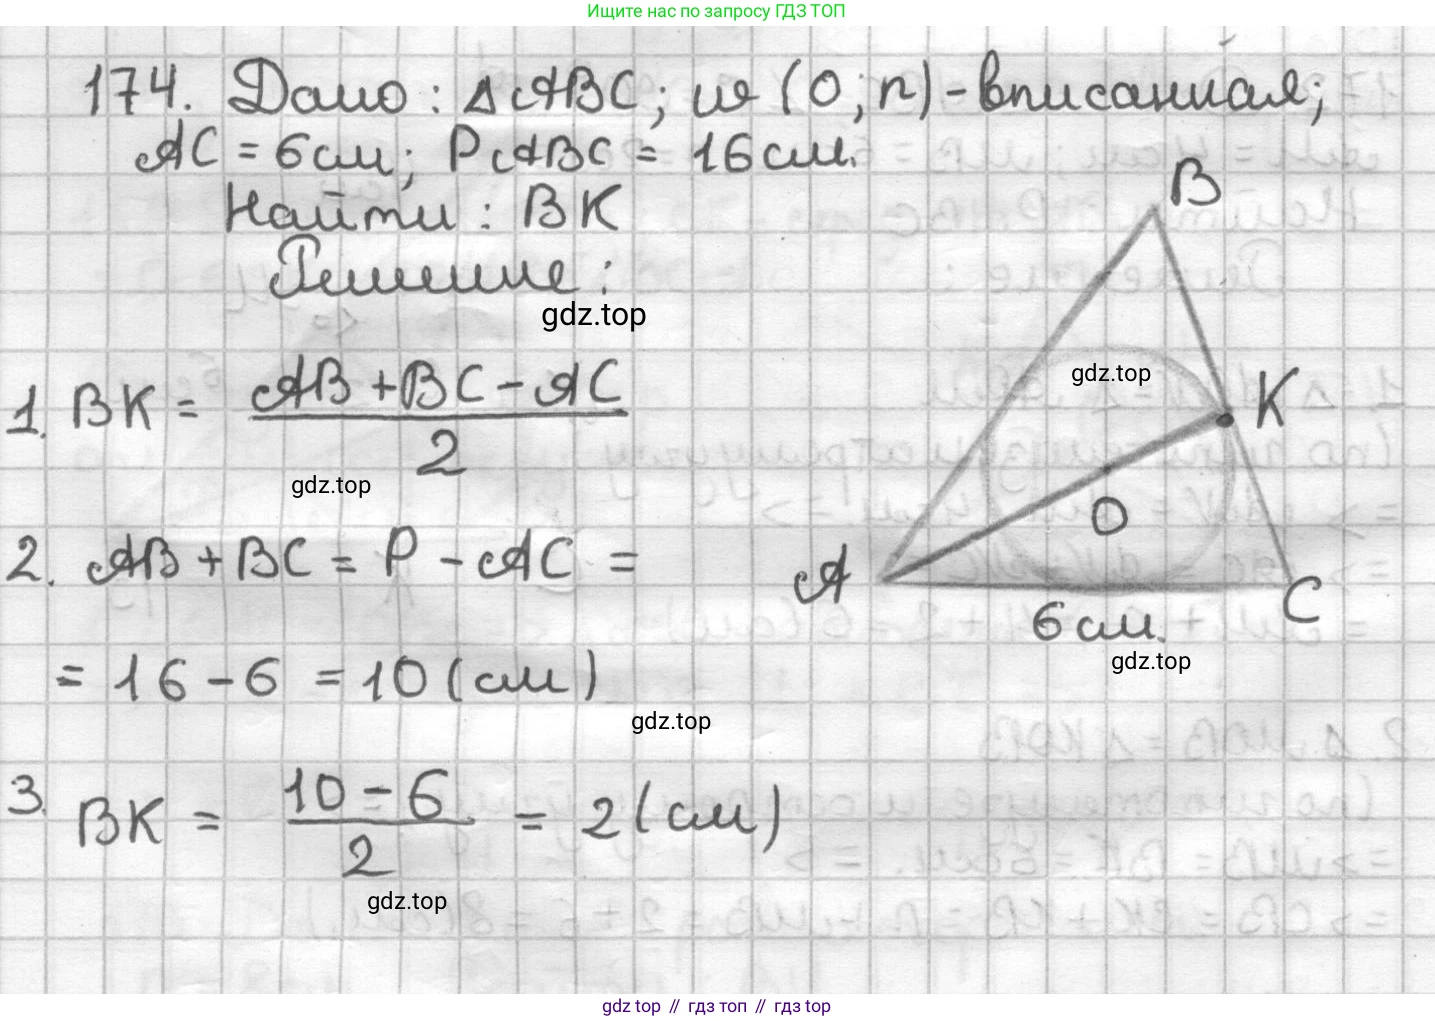 Ищите нас по запросу ГДЗ ТОП
174. Дано: △ABC; w(O; r) - вписанная;
AC = 6см; PABC = 16см.
Найти: BK
Решение:
gdz.top
1. BK = (AB + BC - AC) / 2
gdz.top
2. AB + BC = P - AC =
= 16 - 6 = 10 (см)
gdz.top
3. BK = (10 - 6) / 2 = 2 (см)
gdz.top
B
gdz.top
K
O
A
C
6 см.
gdz.top
gdz top // гдз топ // гдз top